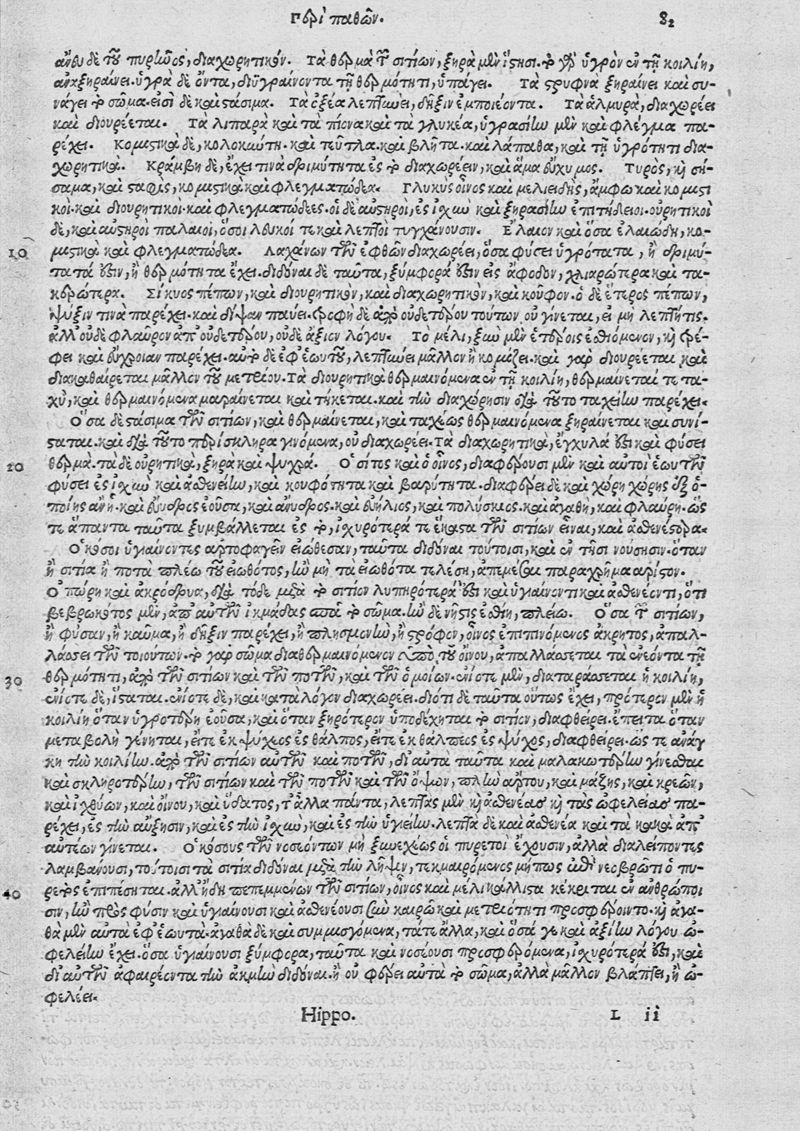 Περὶ παθῶν. 82
ἄνευ δὲ τοῦ πυριῶδος, διαχωρητικόν. Τὰ θερμὰ τῶν σιτίων, ξηρὰ μὲν ἵστησι. τὸ γὰρ ὑγρὸν ἐν τῇ κοιλίῃ,
ἀναξηραίνει. ὑγρὰ δὲ ὄντα, διϋγραίνοντα τῇ θερμότητι, ὑπάγει. Τὰ στρυφνὰ ξηραίνει καὶ συ-
νάγει τὸ σῶμα. εἰσὶ δὲ καὶ στάσιμα. Τὰ ὀξέα λεπτύνει, δῆξιν ἐμποιέοντα. Τὰ ἁλμυρὰ, διαχωρέει
καὶ διουρέεται. Τὰ λιπαρὰ καὶ τὰ πίονα καὶ τὰ γλυκέα, ὑγρασίην μὲν καὶ φλέγμα πα-
ρέχει. Κομιστικὰ δὲ, κολοκώτη. καὶ τεῦτλα. καὶ βλῆτα. καὶ λάπαθα, καὶ τῇ ὑγρότητι δια-
χωρητικά. Κράμβη δὲ, ἔχει τινὰ δριμύτητα ἐς τὸ διαχωρέειν, καὶ ἅμα εὔχυμος. Τυρὸς, καὶ σή-
σαμα, καὶ σταφὶς, κομιστικὰ καὶ φλεγματώδεα. Γλυκὺς οἶνος καὶ μελιειδὴς, ἄμφω καὶ κομιστι
κοὶ. καὶ διουρητικοὶ. καὶ φλεγματώδεες. οἱ δὲ αὐστηροὶ, ἐς ἰσχὺν καὶ ξηρασίην ἐπιτήδειοι. οὐρητικοὶ
δὲ, καὶ αὐστηροὶ παλαιοὶ, ὅσοι λευκοί τε καὶ λεπτοὶ τυγχάνουσιν. Ἔλαιον καὶ ὅσα ἐλαιώδη, κο-
10 μιστικὰ καὶ φλεγματώδεα. Λαχάνων τῶν ἑφθῶν διαχωρέει, ὅσα φύσει ὑγρότατα, ἢ δριμύ-
τατά ἐστιν, ἢ θερμότητα ἔχει. διδόναι δὲ ταῦτα, ξύμφορά ἐστιν εἰς ἄφοδον, χλιαρώτερα καὶ τα-
κερώτερα. Σίκυος πέπων, καὶ διουρητικὸν, καὶ διαχωρητικὸν, καὶ κοῦφον. ὁ δὲ ἕτερος πέπων,
ψύξιν τινὰ παρέχει. καὶ δίψαν παύει. τροφὴ δὲ ἀπὸ οὐδετέρου τούτων οὐ γίνεται, εἰ μὴ λεπτή τις.
ἀλλ' οὐδὲ φλαῦρον ἀπ' οὐδετέρου, οὐδὲ ἄξιον λόγου. Τὸ μέλι, ξὺν μὲν ἑτέροις ἐσθιόμενον, καὶ τρέ-
φει καὶ εὔχροιαν παρέχει. αὐτὸ δὲ ἐφ' ἑωυτοῦ, λεπτύνει μᾶλλον ἢ κομίζει. καὶ γὰρ διουρέεται καὶ
διακαθαίρεται μᾶλλον τοῦ μετρίου. Τὰ διουρητικὰ θερμαινόμενα ἐν τῇ κοιλίῃ, θερμαίνεταί τε τα-
χὺ, καὶ θερμαινόμενα μαραίνεται καὶ τήκεται. καὶ τὴν διαχώρησιν διὰ τοῦτο ταχεῖην παρέχει.
Ὅσα δὲ στάσιμα τῶν σιτίων, καὶ θερμαίνεται, καὶ ταχέως θερμαινόμενα ξηραίνεται καὶ συνί-
σταται. καὶ διὰ τοῦτο περίσκληρα γινόμενα, οὐ διαχωρέει. Τὰ διαχωρητικὰ, ἔγχυλά ἐστι καὶ φύσει
20 θερμὰ. τὰ δὲ οὐρητικὰ, ξηρὰ καὶ ψυχρά. Ὁ σῖτος καὶ ὁ οἶνος, διαφέρουσι μὲν καὶ αὐτοὶ ἑωυτῶν
φύσει ἐς ἰσχὺν καὶ ἀσθενείην, καὶ κουφότητα καὶ βαρύτητα. διαφέρει δὲ καὶ χώρη χώρης ἐξ ὁ-
ποίης ἂν ᾖ. καὶ εὔυδρος ἐοῦσα, καὶ ἄνυδρος. καὶ εὐήλιος, καὶ πολύσκιος. καὶ ἀγαθὴ, καὶ φλαύρη. ὥς
τε ἅπαντα ταῦτα ξυμβάλλεται ἐς τὸ, ἰσχυρότερά τε ἕκαστα τῶν σιτίων εἶναι, καὶ ἀσθενέστερα.
Ὁκόσοι ὑγιαίνοντες ἀρτοφαγεῖν εἰώθεσαν, ταῦτα διδόναι τούτοισι, καὶ ἐν τῇσι νούσησιν. ὅταν
ἢ σιτία ἢ ποτὰ πλέω τοῦ εἰωθότος, ἢν μὴ τὰ εἰωθότα τελέσῃ, ἀπεμέσαι παραχρῆμα ἄριστον.
Ὀπώρη καὶ ἀκρόδρυα, διὰ τόδε μετὰ τὸ σιτίον λυπηρότερά ἐστι καὶ ὑγιαίνοντι καὶ ἀσθενέοντι, ὅτι
βεβρωκότος μὲν, ἀπ' αὐτῶν ἰκμάδας σπᾷ τὸ σῶμα. ἢν δὲ νῆστις ἐσθίῃ, πλείω. Ὅσα τῶν σιτίων,
ἢ φύσαν, ἢ καῦμα, ἢ δῆξιν παρέχει, ἢ πλησμονὴν, ἢ στρόφον, οἶνος ἐπιπινόμενος ἄκρητος, ἀπαλ-
λάσσει τῶν τοιούτων. τὸ γὰρ σῶμα διαθερμαινόμενον ὑπὸ τοῦ οἴνου, ἀπαλλάσσεται τὰ ἐνέοντα τῇ
30 θερμότητι, ἀπὸ τῶν σιτίων καὶ τῶν ποτῶν, καὶ τῶν ὁμοίων. ἐνίοτε μὲν, διαταράσσεται ἡ κοιλίη,
ἐνίοτε δὲ, ἵσταται. ἐνίοτε δὲ, καὶ κατὰ λόγον διαχωρέει. διότι δὲ ταῦτα οὕτως ἔχει, πρότερον μὲν ἡ
κοιλίη ὅταν ὑγροτέρη ἐοῦσα, καὶ ὅταν ξηρότερον ὑποδέχηται τὸ σιτίον, διαφθείρει. ἔπειτα ὅταν
μεταβολὴ γένηται, εἴτε ἐκ ψύχεος ἐς θάλπος, εἴτε ἐκ θάλπεος ἐς ψύχος, διαφθείρει. ὥς τε ἀνάγ
κη τὴν κοιλίην. ἀπὸ τῶν σιτίων αὐτῶν καὶ ποτῶν, δι' αὐτὰ ταῦτα καὶ μαλακωτέρην γίνεσθαι
καὶ σκληροτέρην, τῶν σιτίων καὶ τῶν ποτῶν καὶ τῶν ὄψων, πλὴν ἄρτου, καὶ μάζης, καὶ κρεῶν,
καὶ ἰχθύων, καὶ οἴνου, καὶ ὕδατος, τἆλλα πάντα, λεπτὰς μὲν καὶ ἀσθενέας καὶ τὰς ὠφελείας πα-
ρέχει, ἐς τὴν αὔξησιν, καὶ ἐς τὴν ἰσχὺν, καὶ ἐς τὴν ὑγιείην. λεπτὰ δὲ καὶ ἀσθενέα καὶ τὰ κακὰ ἀπ'
αὐτέων γίνεται. Ὁκόσους τῶν νοσεόντων μὴ ξυνεχέως οἱ πυρετοὶ ἔχουσιν, ἀλλὰ διαλείποντες
λαμβάνουσι, τούτοισι τὰ σιτία διδόναι μετὰ τὴν λῆψιν, τεκμαιρόμενος μή πως ἐπὶ νεοβρῶτι ὁ πυ-
ρετὸς ἐπιπέσηται. ἀλλ' ἤδη πεπεμμένων τῶν σιτίων, οἶνος καὶ μέλι κάλλιστα κέκριται ἐν ἀνθρώποι
40 σιν, ἢν πρὸς φύσιν καὶ ὑγιαίνουσι καὶ ἀσθενέουσι ξὺν καιρῷ καὶ μετριότητι προσφέροιντο. καὶ ἀγα-
θὰ μὲν αὐτὰ ἐφ' ἑωυτά. ἀγαθὰ δὲ καὶ συμμισγόμενα, τά τε ἄλλα, καὶ ὅσα γε καὶ ἀξίην λόγου ὠ-
φελείην ἔχει. ὅσα ὑγιαίνουσι ξύμφορα, ταῦτα καὶ νοσέουσι προσφερόμενα, ἰσχυρότερά ἐστι, καὶ
δεῖ αὐτῶν ἀφαιρέοντα τὴν ἀκμὴν διδόναι. ἢ οὐ φέρει αὐτὰ τὸ σῶμα, ἀλλὰ μᾶλλον βλάπτει, ἢ ὠ-
φελέει.
Hippo. L ii